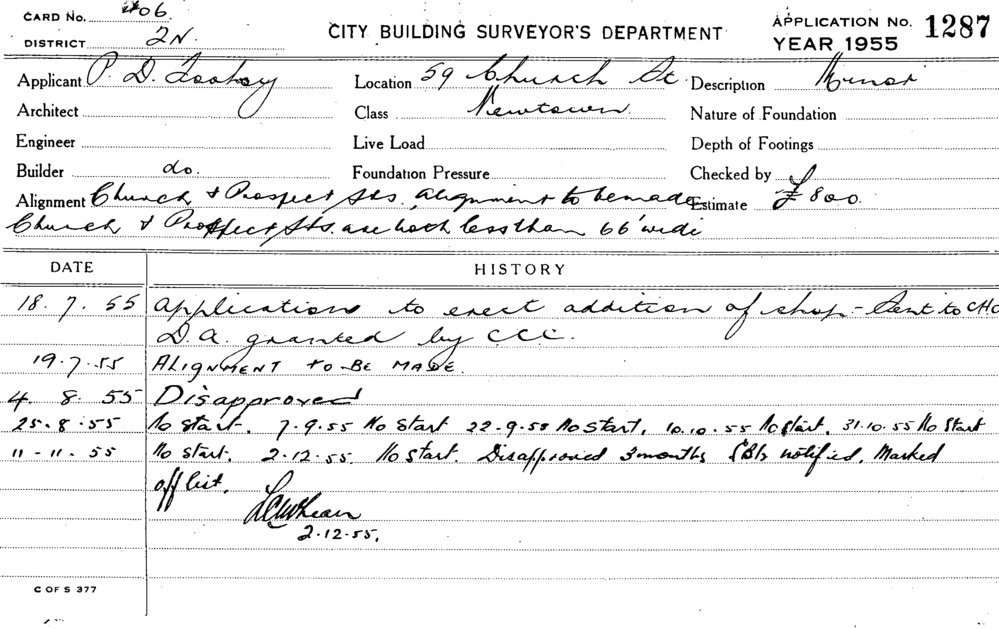 CARD No. 406
CITY BUILDING SURVEYOR'S DEPARTMENT
APPLICATION No. 1287
DISTRICT 2N.
YEAR 1955
Applicant P. D. Toohey Location 59 Church St Description Minor
Architect Class Newtown. Nature of Foundation
Engineer Live Load Depth of Footings
Builder do. Foundation Pressure Checked by
Alignment Church & Prospect Sts. alignment to be made Estimate £800.
Church & Prospect Sts. are both less than 66' wide
DATE HISTORY
18. 7. 55 Application to erect addition of shop - Sent to CHO
D.A. granted by CCC.
19.7.55 ALIGNMENT TO BE MADE.
4. 8. 55 Disapproved
25.8.55 No start. 7.9.55 No start 22.9.55 No start. 10.10.55 No start. 31.10.55 No Start
11-11.55 No start. 2.12.55. No start. Disapproved 3 months notified. Marked
off list.
2.12.55.
C OF S 377